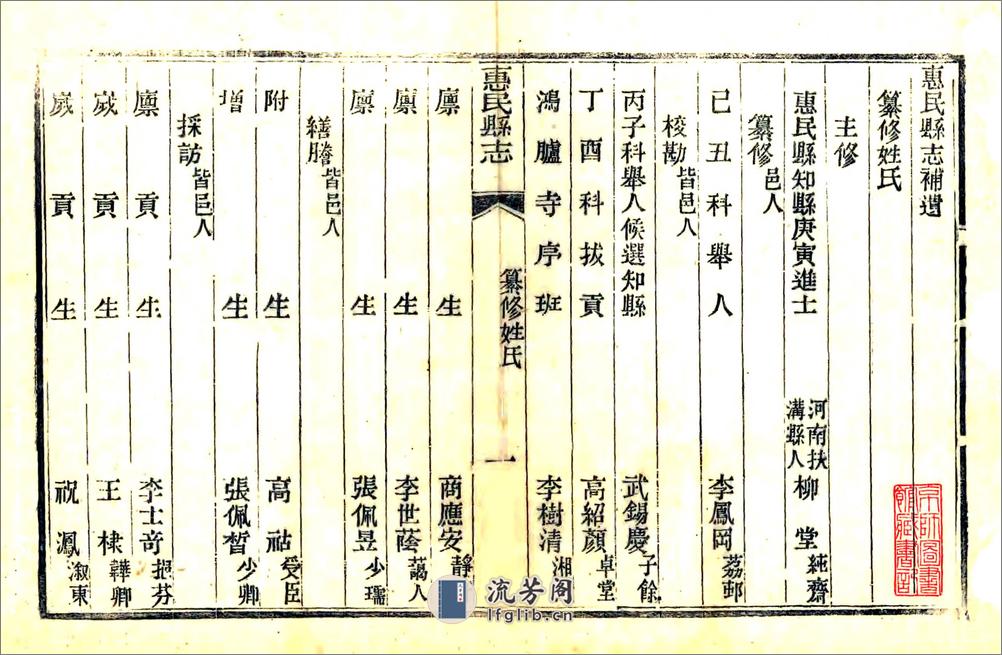 惠民縣志補遺
纂修姓氏
主修
惠民縣知縣庚寅進士 河南扶溝縣人 柳堂 純齋
纂修 邑人
己丑科舉人 李鳳岡 荔邨
校勘 皆邑人
丙子科舉人候選知縣 武錫慶 子餘
丁酉科拔貢 高紹顏 卓堂
鴻臚寺序班 李樹清 湘
惠民縣志 纂修姓氏 一
廩生 商應安 靜
廩生 李世蔭 藹人
廩生 張佩昱 少璵
繕謄 皆邑人
附生 高祜 受臣
增生 張佩晳 少卿
採訪 皆邑人
廩貢生 李士奇 挹芬
歲貢生 王棣 韡卿
歲貢生 祝鳳 溆東
京師圖書館藏書記
流芳阁
lfglib.cn